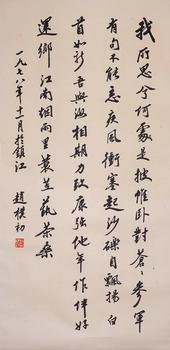 我所思兮何處是披帷臥對蒼〻參軍
有句不能忘疾風衝塞起沙礫自飄揚 白
首如新吾與汝相期力致康強他年作伴好
還鄉江南烟雨里蓑笠藝茶桑
一九七八年十一月於鎮江
趙樸初